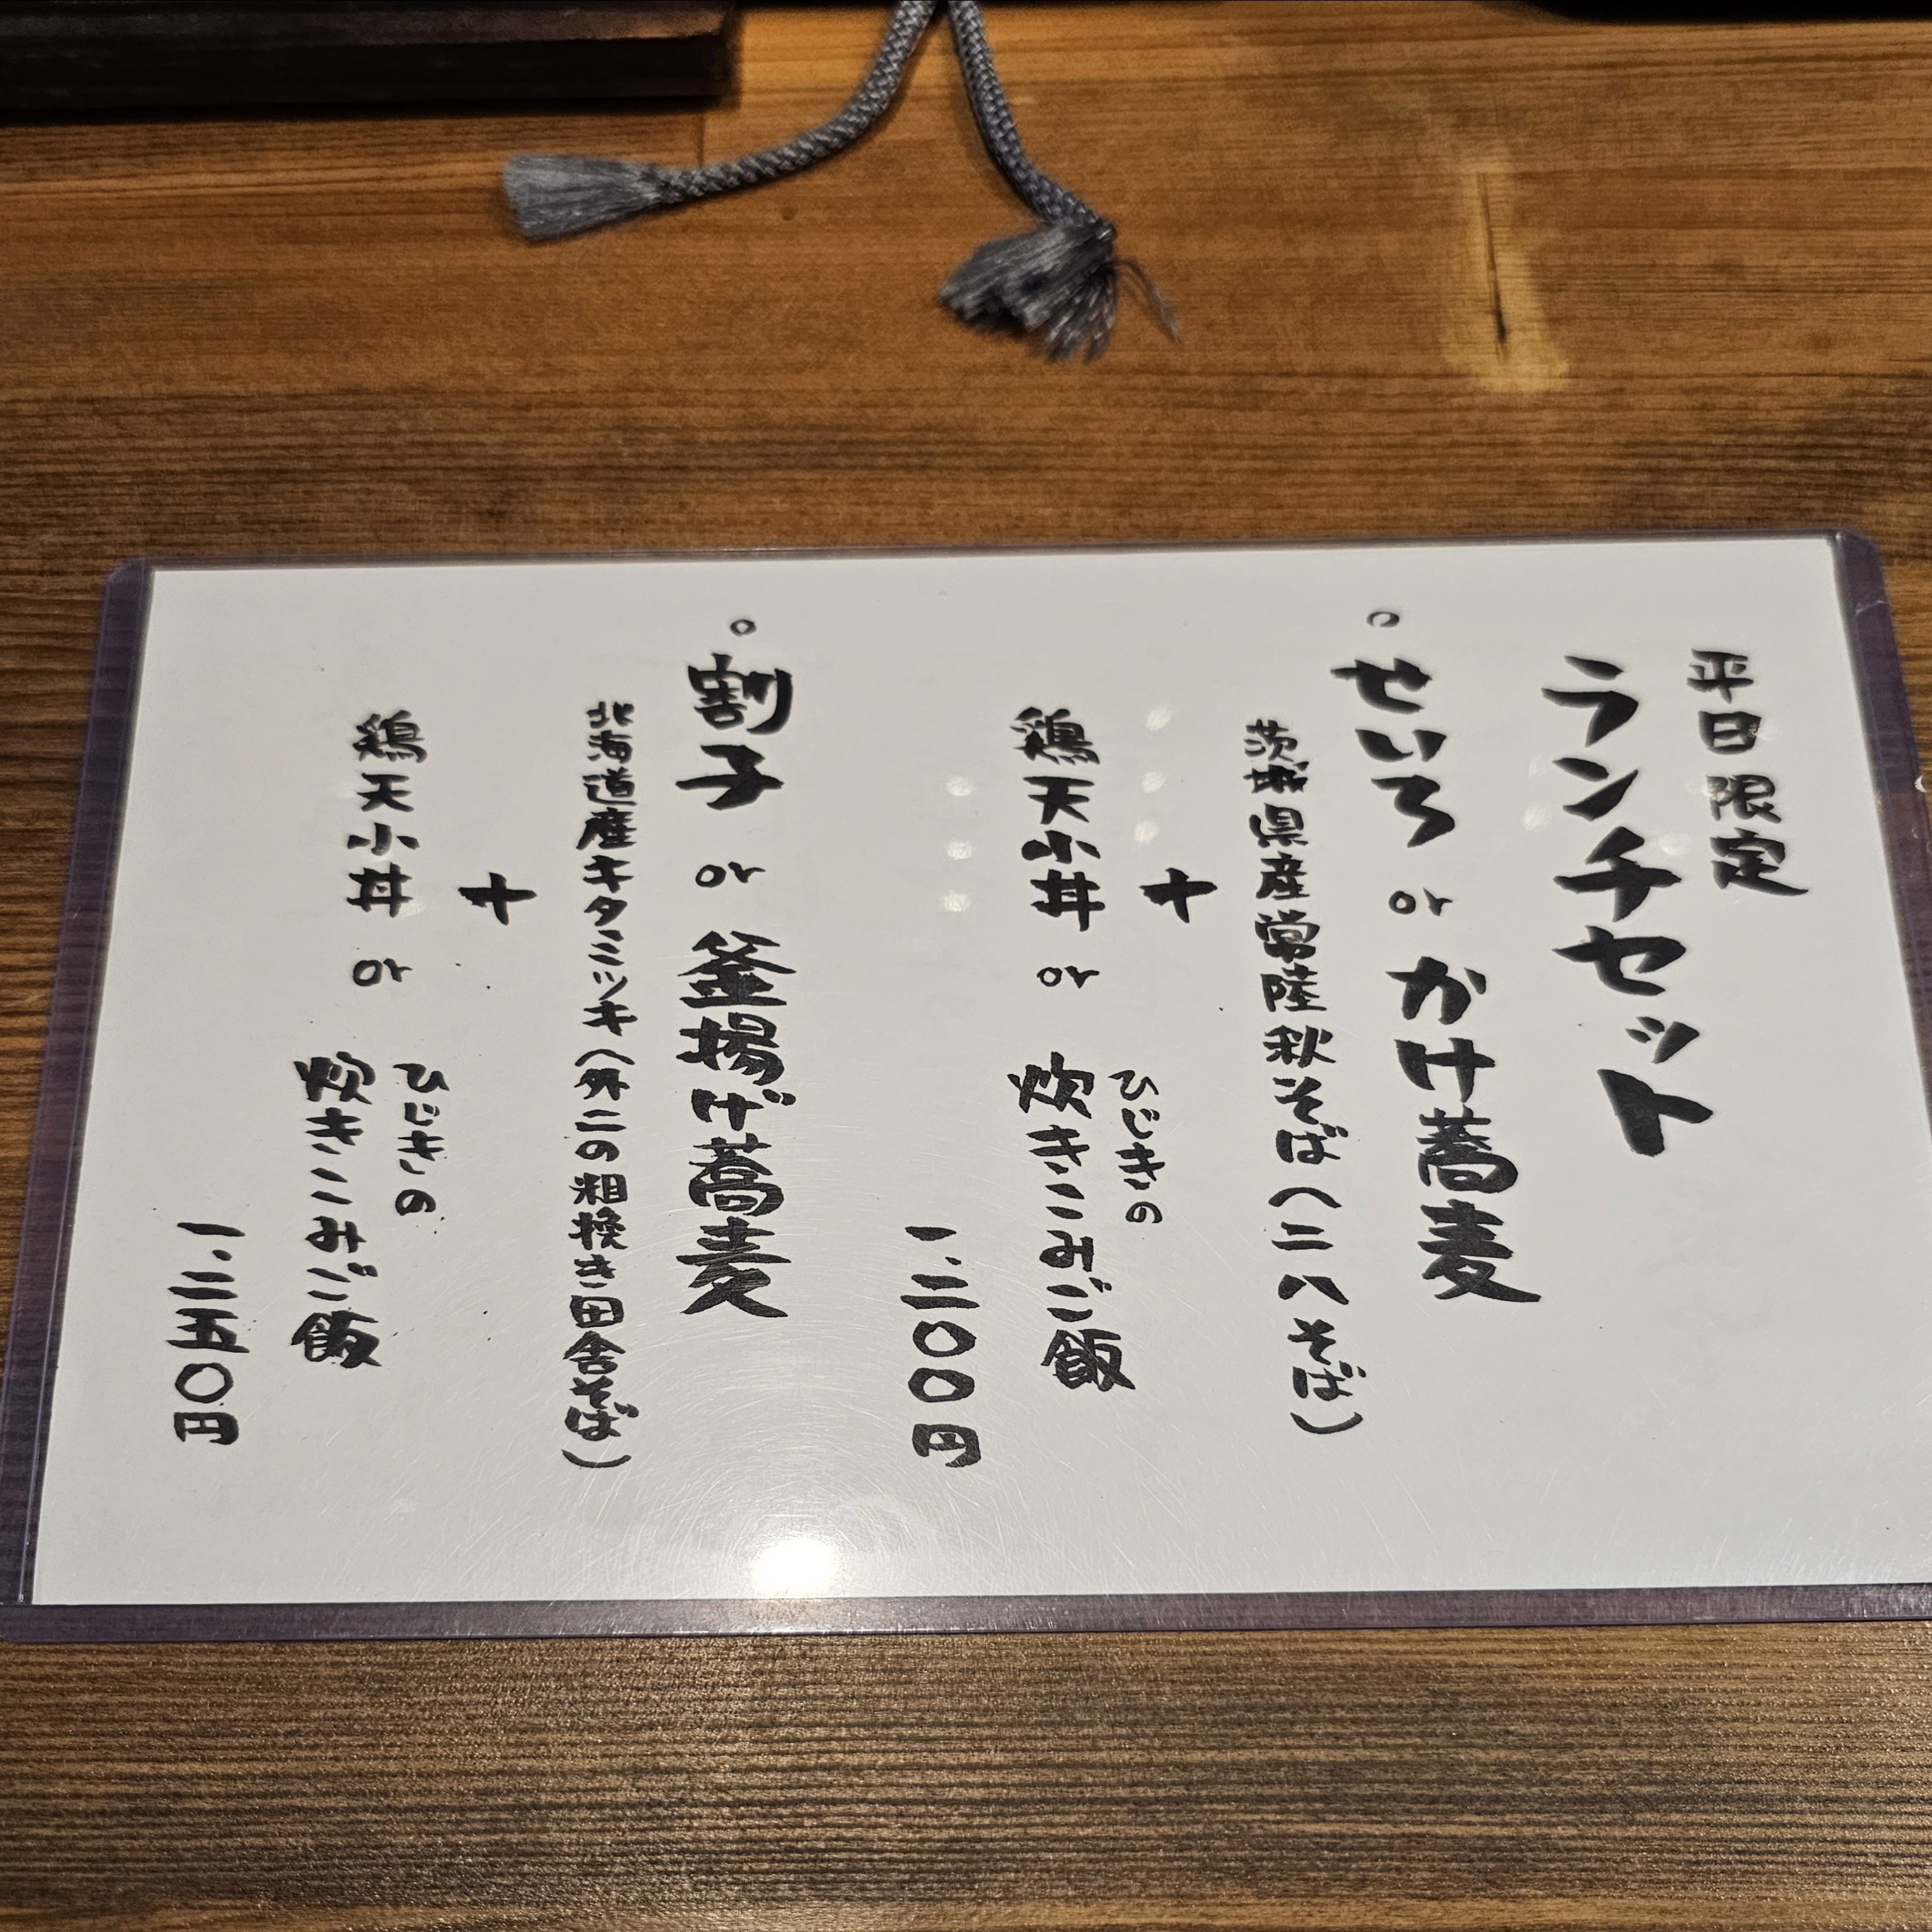 平日限定
ランチセット
○せいろ or かけ蕎麦
茨城県産常陸秋そば(二八そば)
+
鶏天小丼 or ひじきの炊きこみご飯
一.二〇〇円
○割子 or 釜揚げ蕎麦
北海道産キタミツキ(外二の粗挽き田舎そば)
+
鶏天小丼 or ひじきの炊きこみご飯
一.二五〇円